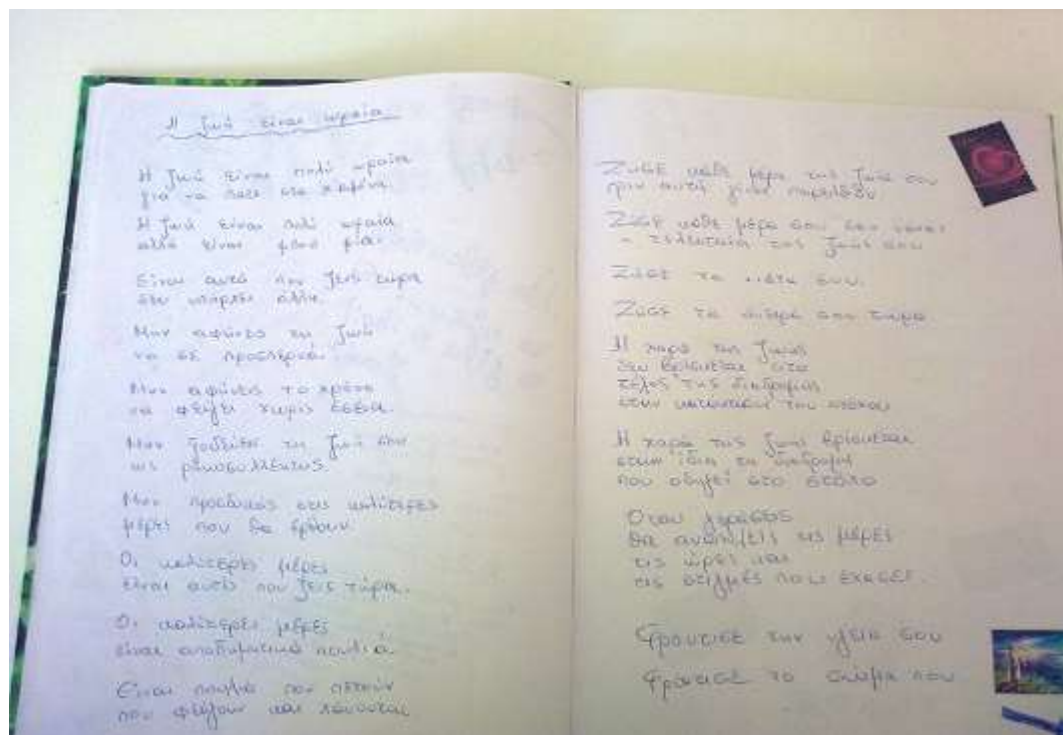 Η ζωή είναι ωραία
Η ζωή είναι πολύ ωραία
για να πάει στα χαμένα.
Η ζωή είναι πολύ ωραία
αλλά είναι μόνο μία.
Είναι αυτό που ζεις τώρα
δεν υπάρχει άλλη.
Μην αφήνεις τη ζωή
να σε προσπερνά.
Μην αφήνεις το χρόνο
να φεύγει χωρίς έσοδα.
Μην ξοδεύεις τη ζωή σου
ως
Μην προσδοκάς στις καλύτερες
μέρες που θα έρθουν.
Οι καλύτερες μέρες
είναι αυτές που ζεις τώρα.
Οι καλύτερες μέρες
είναι αποδημητικά πουλιά.
Είναι πουλιά που πετούν
που φεύγουν και χάνονται
Ζήσε κάθε μέρα της ζωής σου
πριν αυτή γίνει παρελθόν
Ζήσε κάθε μέρα σου σαν να είναι
η τελευταία της ζωής σου
Ζήσε το
Ζήσε το σήμερα σου τώρα
Η χαρά της ζωής
δεν βρίσκεται στο
τέλος της διαδρομής
στην κατάκτηση του στόχου
Η χαρά της ζωής βρίσκεται
στην ίδια τη διαδρομή
που οδηγεί στο στόχο
Όταν γεράσεις
θα αναπολείς τις μέρες
τις ώρες και
τις στιγμές που έχασες.
Φρόντισε την υγεία σου
Φρόντισε το σώμα σου